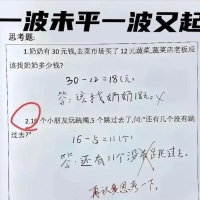 一波未平一波又起
思考题:
1.奶奶有30元钱,去菜市场买了12元蔬菜,蔬菜店老板应
该找奶奶多少钱?
30-12=18(元)
答:该找奶奶18元。
2.16个小朋友玩跳绳,5个跳过去了,问:"还有几个没有跳
过去?"
16-5=11(个)
答:还有11个没有跳过去。
再认真思考一下。